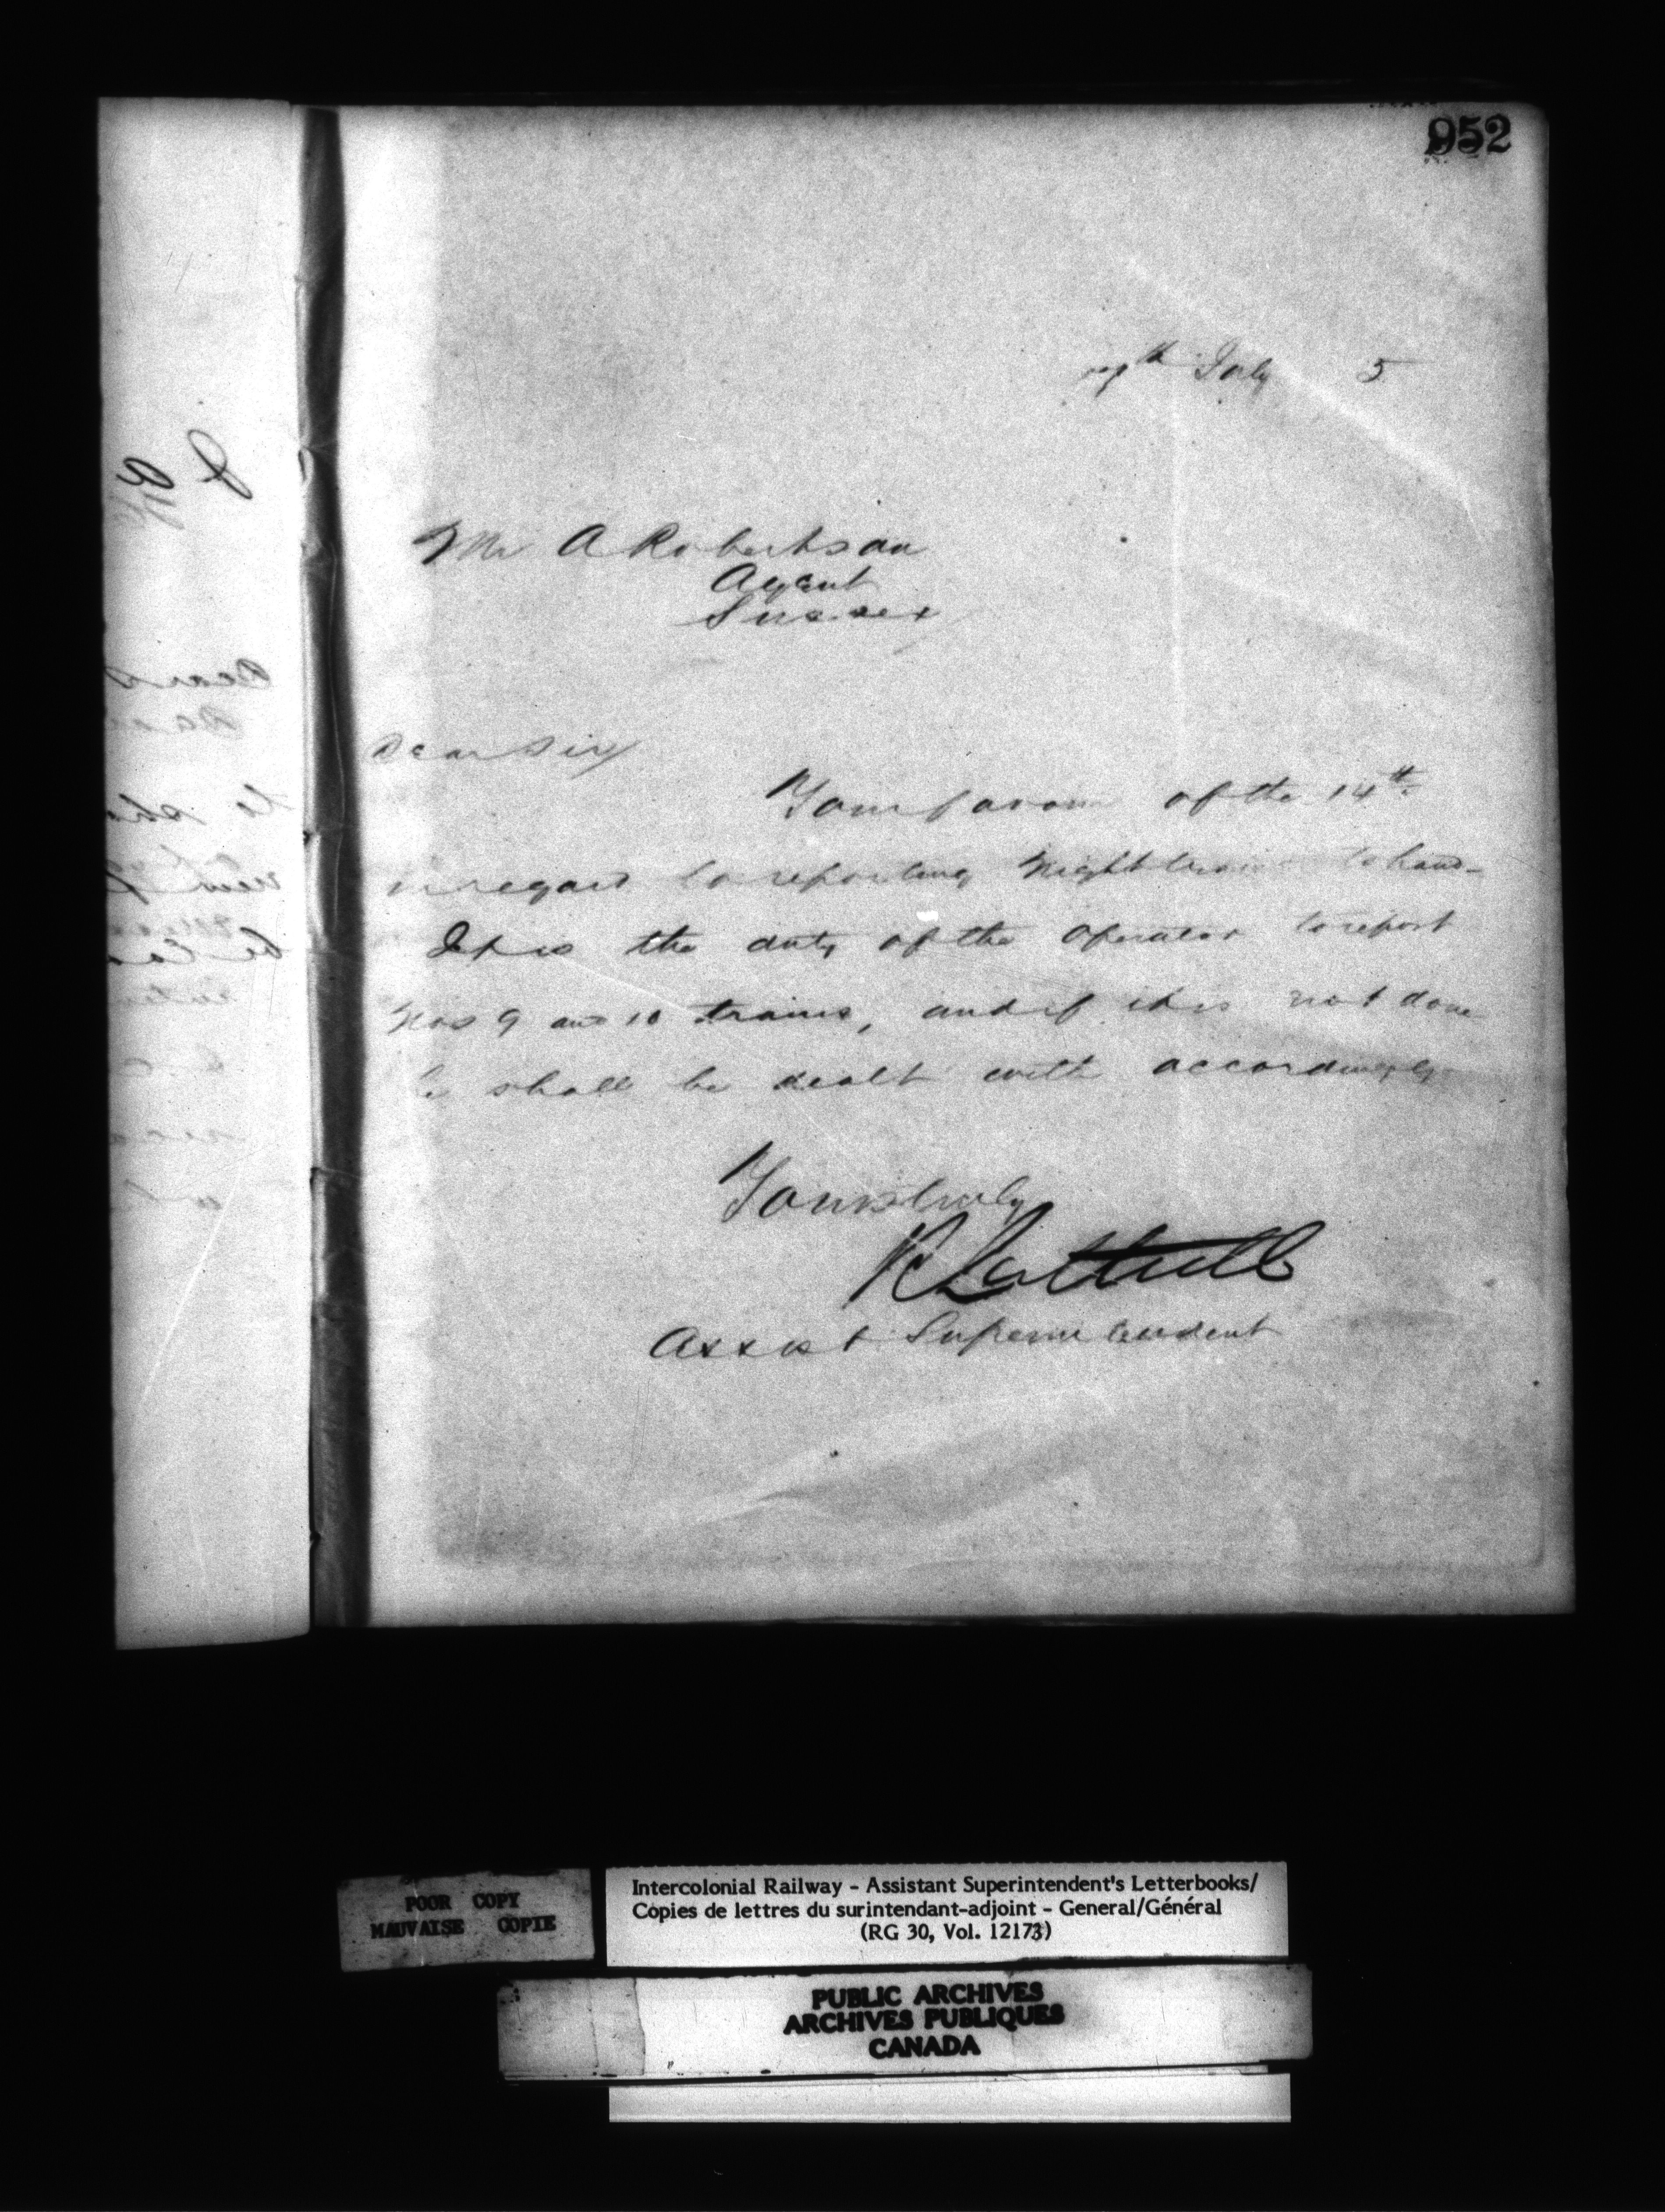 952
July 5
Mr A Robertson
Agent
Sussex
Dear Sir
Your favour of the 14th
in regard to reporting Night trains to hand-
It is the duty of the Operator to report
Nos 9 and 10 trains, and if it is not done
he shall be dealt with accordingly
Yours truly
Assist Superintendent
POOR COPY
MAUVAISE COPIE
Intercolonial Railway - Assistant Superintendent's Letterbooks/
Copies de lettres du surintendant-adjoint - General/Général
(RG 30, Vol. 12173)
PUBLIC ARCHIVES
ARCHIVES PUBLIQUES
CANADA